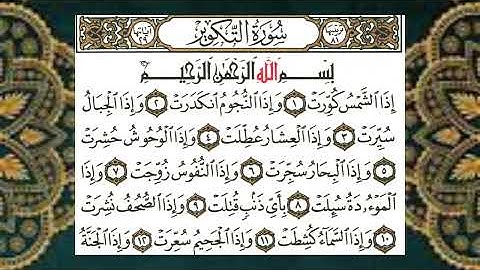 سُورَةُ التَّكْوِيرِ
بِسْمِ اللَّهِ الرَّحْمَٰنِ الرَّحِيمِ
إِذَا الشَّمْسُ كُوِّرَتْ ١ وَإِذَا النُّجُومُ انكَدَرَتْ ٢ وَإِذَا الْجِبَالُ
سُيِّرَتْ ٣ وَإِذَا الْعِشَارُ عُطِّلَتْ ٤ وَإِذَا الْوُحُوشُ حُشِرَتْ
٥ وَإِذَا الْبِحَارُ سُجِّرَتْ ٦ وَإِذَا النُّفُوسُ زُوِّجَتْ ٧ وَإِذَا
الْمَوْءُۥدَةُ سُئِلَتْ ٨ بِأَيِّ ذَنبٍ قُتِلَتْ ٩ وَإِذَا الصُّحُفُ نُشِرَتْ
١٠ وَإِذَا السَّمَاءُ كُشِطَتْ ١١ وَإِذَا الْجَحِيمُ سُعِّرَتْ ١٢ وَإِذَا الْجَنَّةُ